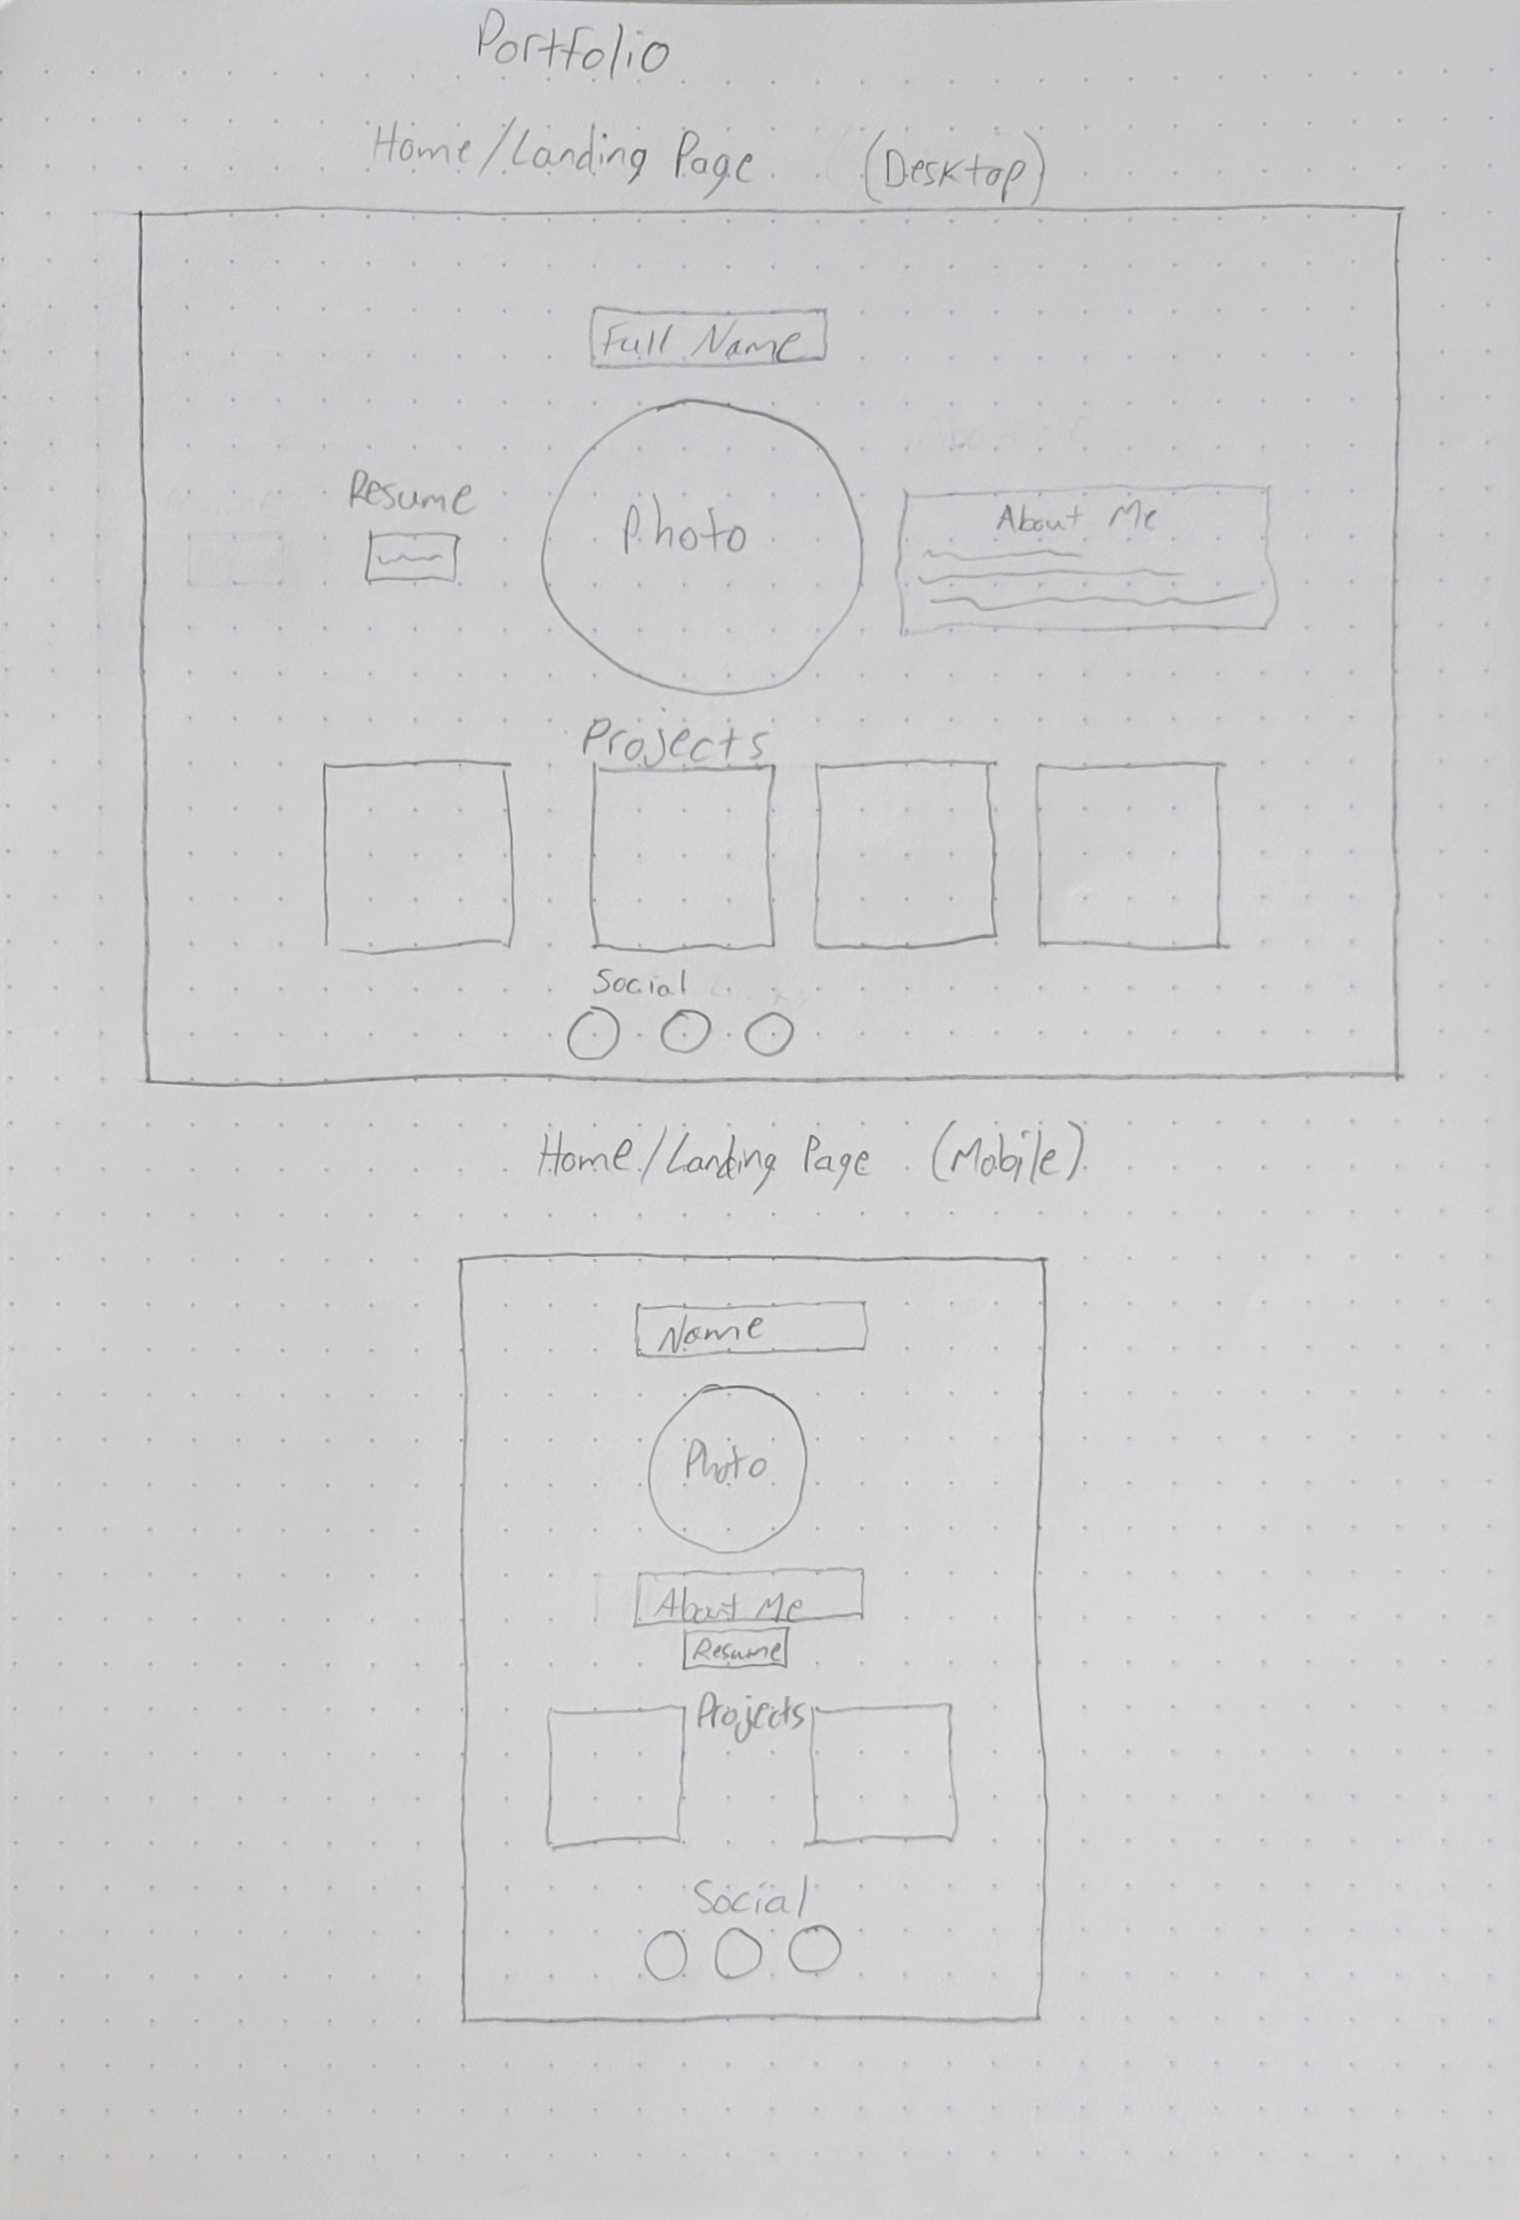 Portfolio
Home/Landing Page (Desktop)
Full Name
Resume
Photo
About Me
Projects
Social
Home/Landing Page (Mobile)
Name
Photo
About Me
Resume
Projects
Social